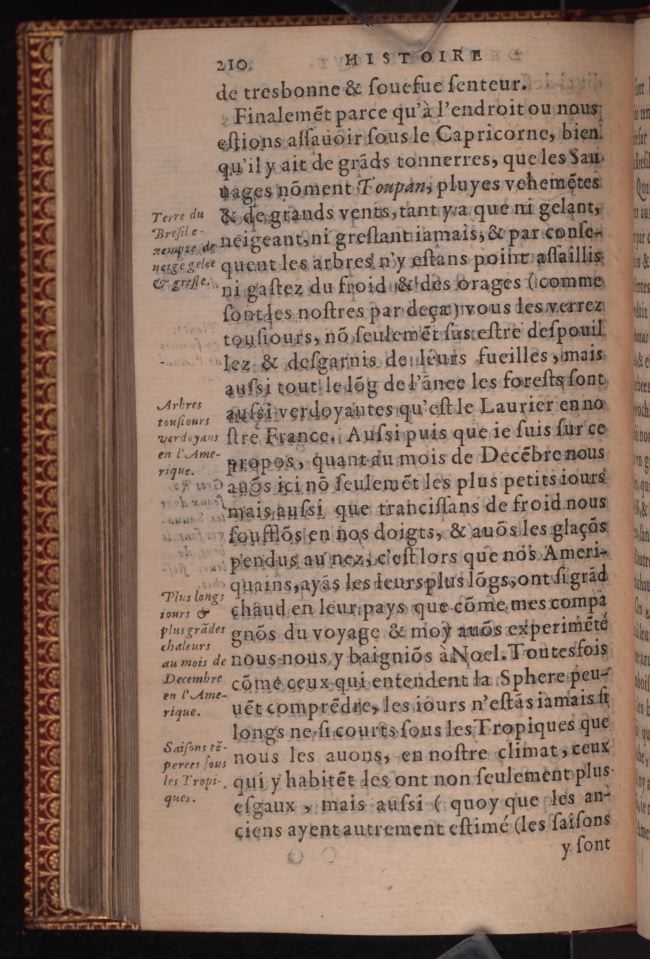 210 HISTOIRE
de tresbonne & souefue senteur.
Finalemẽt parce qu'à l'endroit ou nous
estions assauoir sous le Capricorne, bien
qu'il y ait de grãds tonnerres, que les Sau
uages nõment Toupan, pluyes vehemẽtes
& de grands vents, tant y a que ni gelant,
neigeant, ni greslant iamais, & par conse-
quent les arbres n'y estans point assaillis
ni gastez du froid & des orages (comme
sont les nostres par deça) vous les verrez
tousiours, nõ seulemẽt sãs estre despouil
lez & desgarnis de leurs fueilles, mais
aussi tout le lõg de l'ãnee les forests sont
aussi verdoyantes qu'est le Laurier en no
stre France. Aussi puis que ie suis sur ce
propos, quant au mois de Decẽbre nous
auõs ici nõ seulemẽt les plus petits iours
mais aussi que trancissans de froid nous
soufflõs en nos doigts, & auõs les glaçõs
pendus au nez, c'est lors que nos Ameri-
quains, ayãs les leurs plus lõgs, ont si grãd
chaud en leur pays que cõme mes compa
gnõs du voyage & moy auõs experimẽté
nous nous y baigniõs à Noel. Toutesfois
cõme ceux qui entendent la Sphere peu-
uẽt comprẽdre, les iours n'estãs iamais si
longs ne si courts sous les Tropiques que
nous les auons, en nostre climat, ceux
qui y habitẽt les ont non seulement plus
esgaux, mais aussi (quoy que les an-
ciens ayent autrement estimé (les saisons
y sont
Terre du
Bresil e-
xempte de
neige gelee
& gresle.
Arbres
tousiours
verdoyans
en l'Ame-
rique.
Plus longs
iours &
plus grãdes
chaleurs
au mois de
Decembre
en l'Ame-
rique.
Saisons tẽ-
perees sous
les Tropi-
ques.